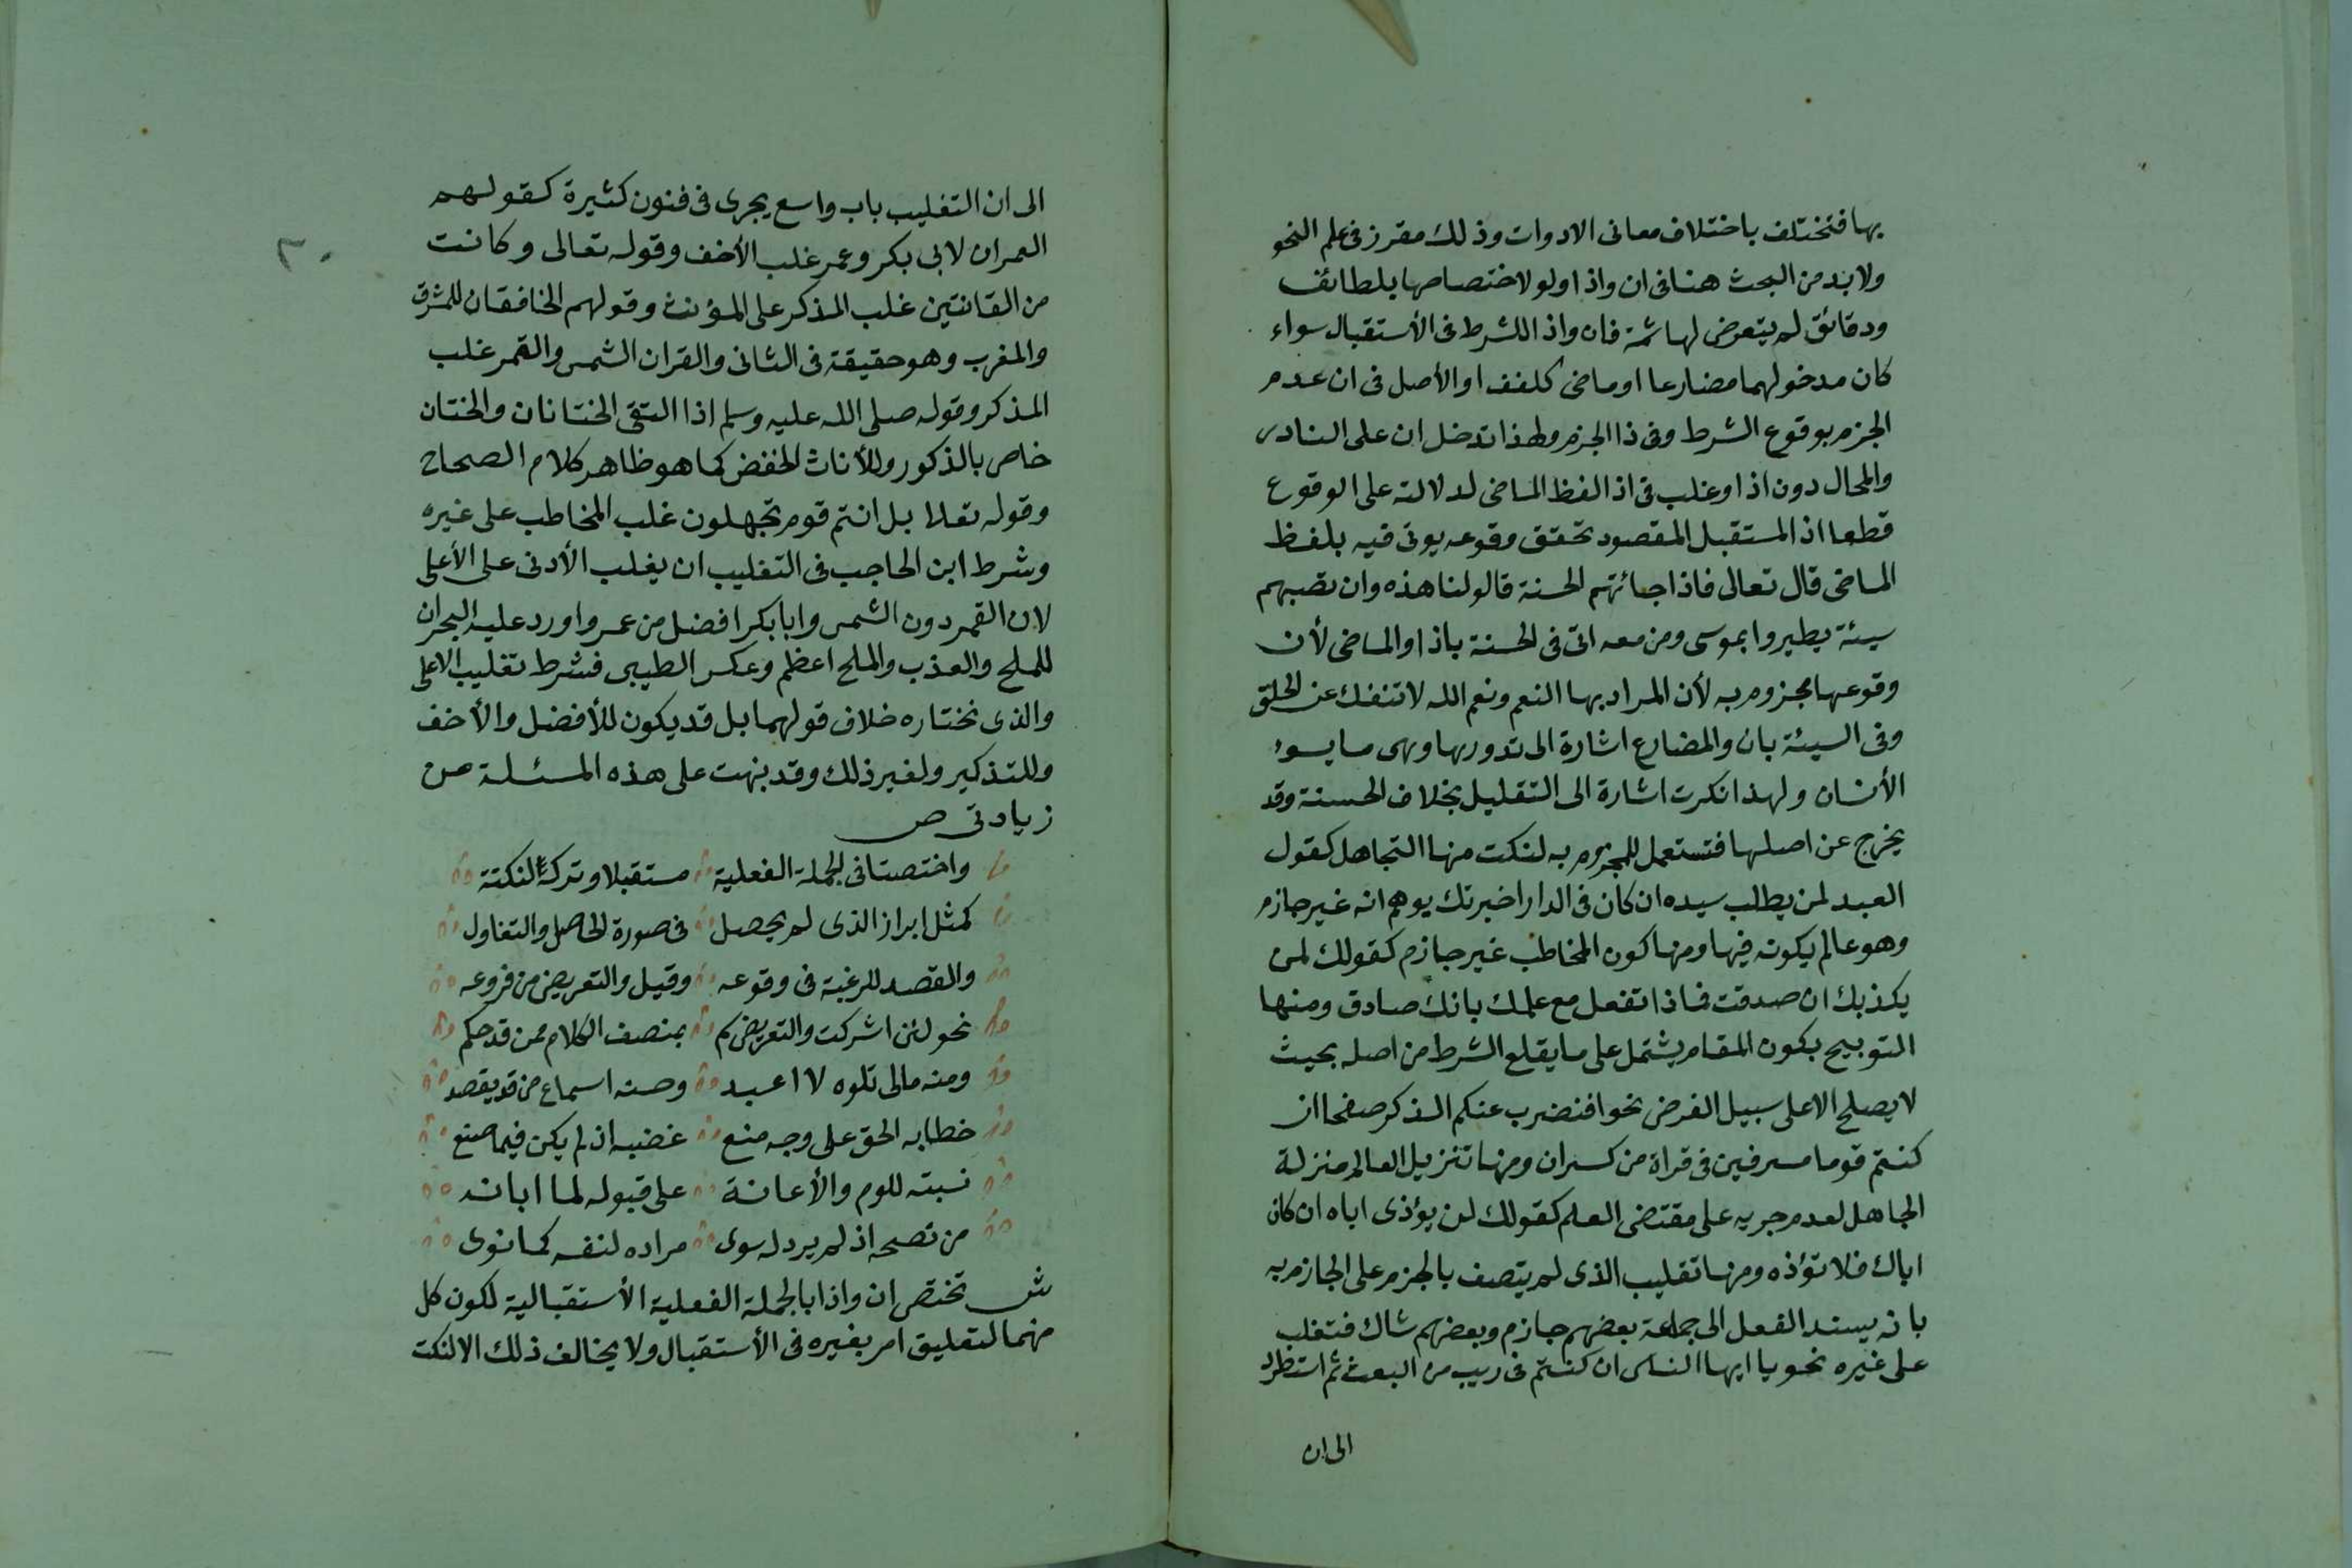 بها فتختلف باختلاف معانى الادوات وذلك مقرر فى علم النحو
ولا بد من البحث هنا فى ان واذا ولو لاختصاصها بلطائف
ودقائق لم يتعرض لها ثمة فان واذا للشرط فى الأستقبال سواء
كان مدخولهما مضارعا او ماضى كلفف او الأصل فى ان عدم
الجزم بوقوع الشرط وفى ذا الجزم ولهذا تدخل ان على النادر
والمحال دون اذا وغلب فى اذا لفظ الماضى لدلالته على الوقوع
قطعا اذ المستقبل المقصود تحقق وقوعه يوتى فيه بلفظ
الماضى قال تعالى فاذا جائتهم الحسنة قالو لنا هذه وان تصبهم
سيئة يطيروا بموسى ومن معه اتى فى الحسنة باذا والماضى لأن
وقوعها مجزوم به لأن المراد بها النعم ونعم الله لا تنفك عن الخلق
وفى السيئة بان والمضارع اشارة الى ندورها وهى ما يسوء
الأنسان ولهذا نكرت اشارة الى التقليل بخلاف الحسنة وقد
يخرج عن اصلها فتستعمل للمجزوم به لنكت منها التجاهل كقول
العبد لمن يطلب سيده ان كان فى الدار اخبرتك يوهم انه غير جازم
وهو عالم بكونه فيها ومنها كون المخاطب غير جازم كقولك لمن
يكذبك ان صدقت فماذا تفعل مع علمك بانك صادق ومنها
التوبيخ بكون المقام يشتمل على ما يقلع الشرط من اصله بحيث
لا يصلح الا على سبيل الفرض نحو افنضرب عنكم الذكر صفحا ان
كنتم قوما مسرفين فى قراة من كسر ان ومنها تنزيل العالم منزلة
الجاهل لعدم جريه على مقتضى العلم كقولك لمن يؤذى اباه ان كان
اباك فلا تؤذه ومنها تغليب الذى لم يتصف بالجزم على الجازم به
بانه يسند الفعل الى جماعة بعضهم جازم وبعضهم شاك فتغلب
على غيره نحو يا ايها الناس ان كنتم فى ريب من البعث ثم استطرد
الى ان
٣٠
الى ان التغليب باب واسع يجرى فى فنون كثيرة كقولهم
العمران لابى بكر وعمر غلب الأخف وقوله تعالى وكانت
من القانتين غلب المذكر على المؤنث وقولهم الخافقان للمشرق
والمغرب وهو حقيقة فى الثانى والقران الشمس والقمر غلب
المذكر وقوله صلى الله عليه وسلم اذا التقى الختانان والختان
خاص بالذكور وللأناث الخفض كما هو ظاهر كلام الصحاح
وقوله تعلا بل انتم قوم تجهلون غلب المخاطب على غيره
وشرط ابن الحاجب فى التغليب ان يغلب الأدنى على الأعلى
لان القمر دون الشمس وابا بكر افضل من عمر واورد عليه البحران
للملح والعذب والملح اعظم وعكس الطيبى فشرط تغليب الاعلى
والذى نختاره خلاف قولهما بل قد يكون للأفضل والأخف
وللتذكير ولغير ذلك وقد بنهت على هذه المسئلة من
زيادتى ص
واختصتا فى الجملة الفعلية مستقبلا وتركه النكتة
كمثل ابراز الذى لم يحصل فى صورة الحاصل والتفاول
والقصد للرغبة فى وقوعه وقيل والتعريض من فروعه
نحو لئن اشركت والتعريض كم بمنصف الكلام ممن قد حكم
ومنه مالى تلوه لا اعبد وحسنه اسماع من قد يقصد
خطابه الحق على وجه منع غضبه اذ لم يكن فيما صنع
نسبته للوم والأعانة على قبوله لما ابانه
من نصحه اذ لم يرد له سوى مراده لنفسه كما نوى
ش تختص ان واذا بالجملة الفعلية الأستقبالية لكون كل
منهما لتعليق امر بغيره فى الأستقبال ولا يخالف ذلك الا لنكت